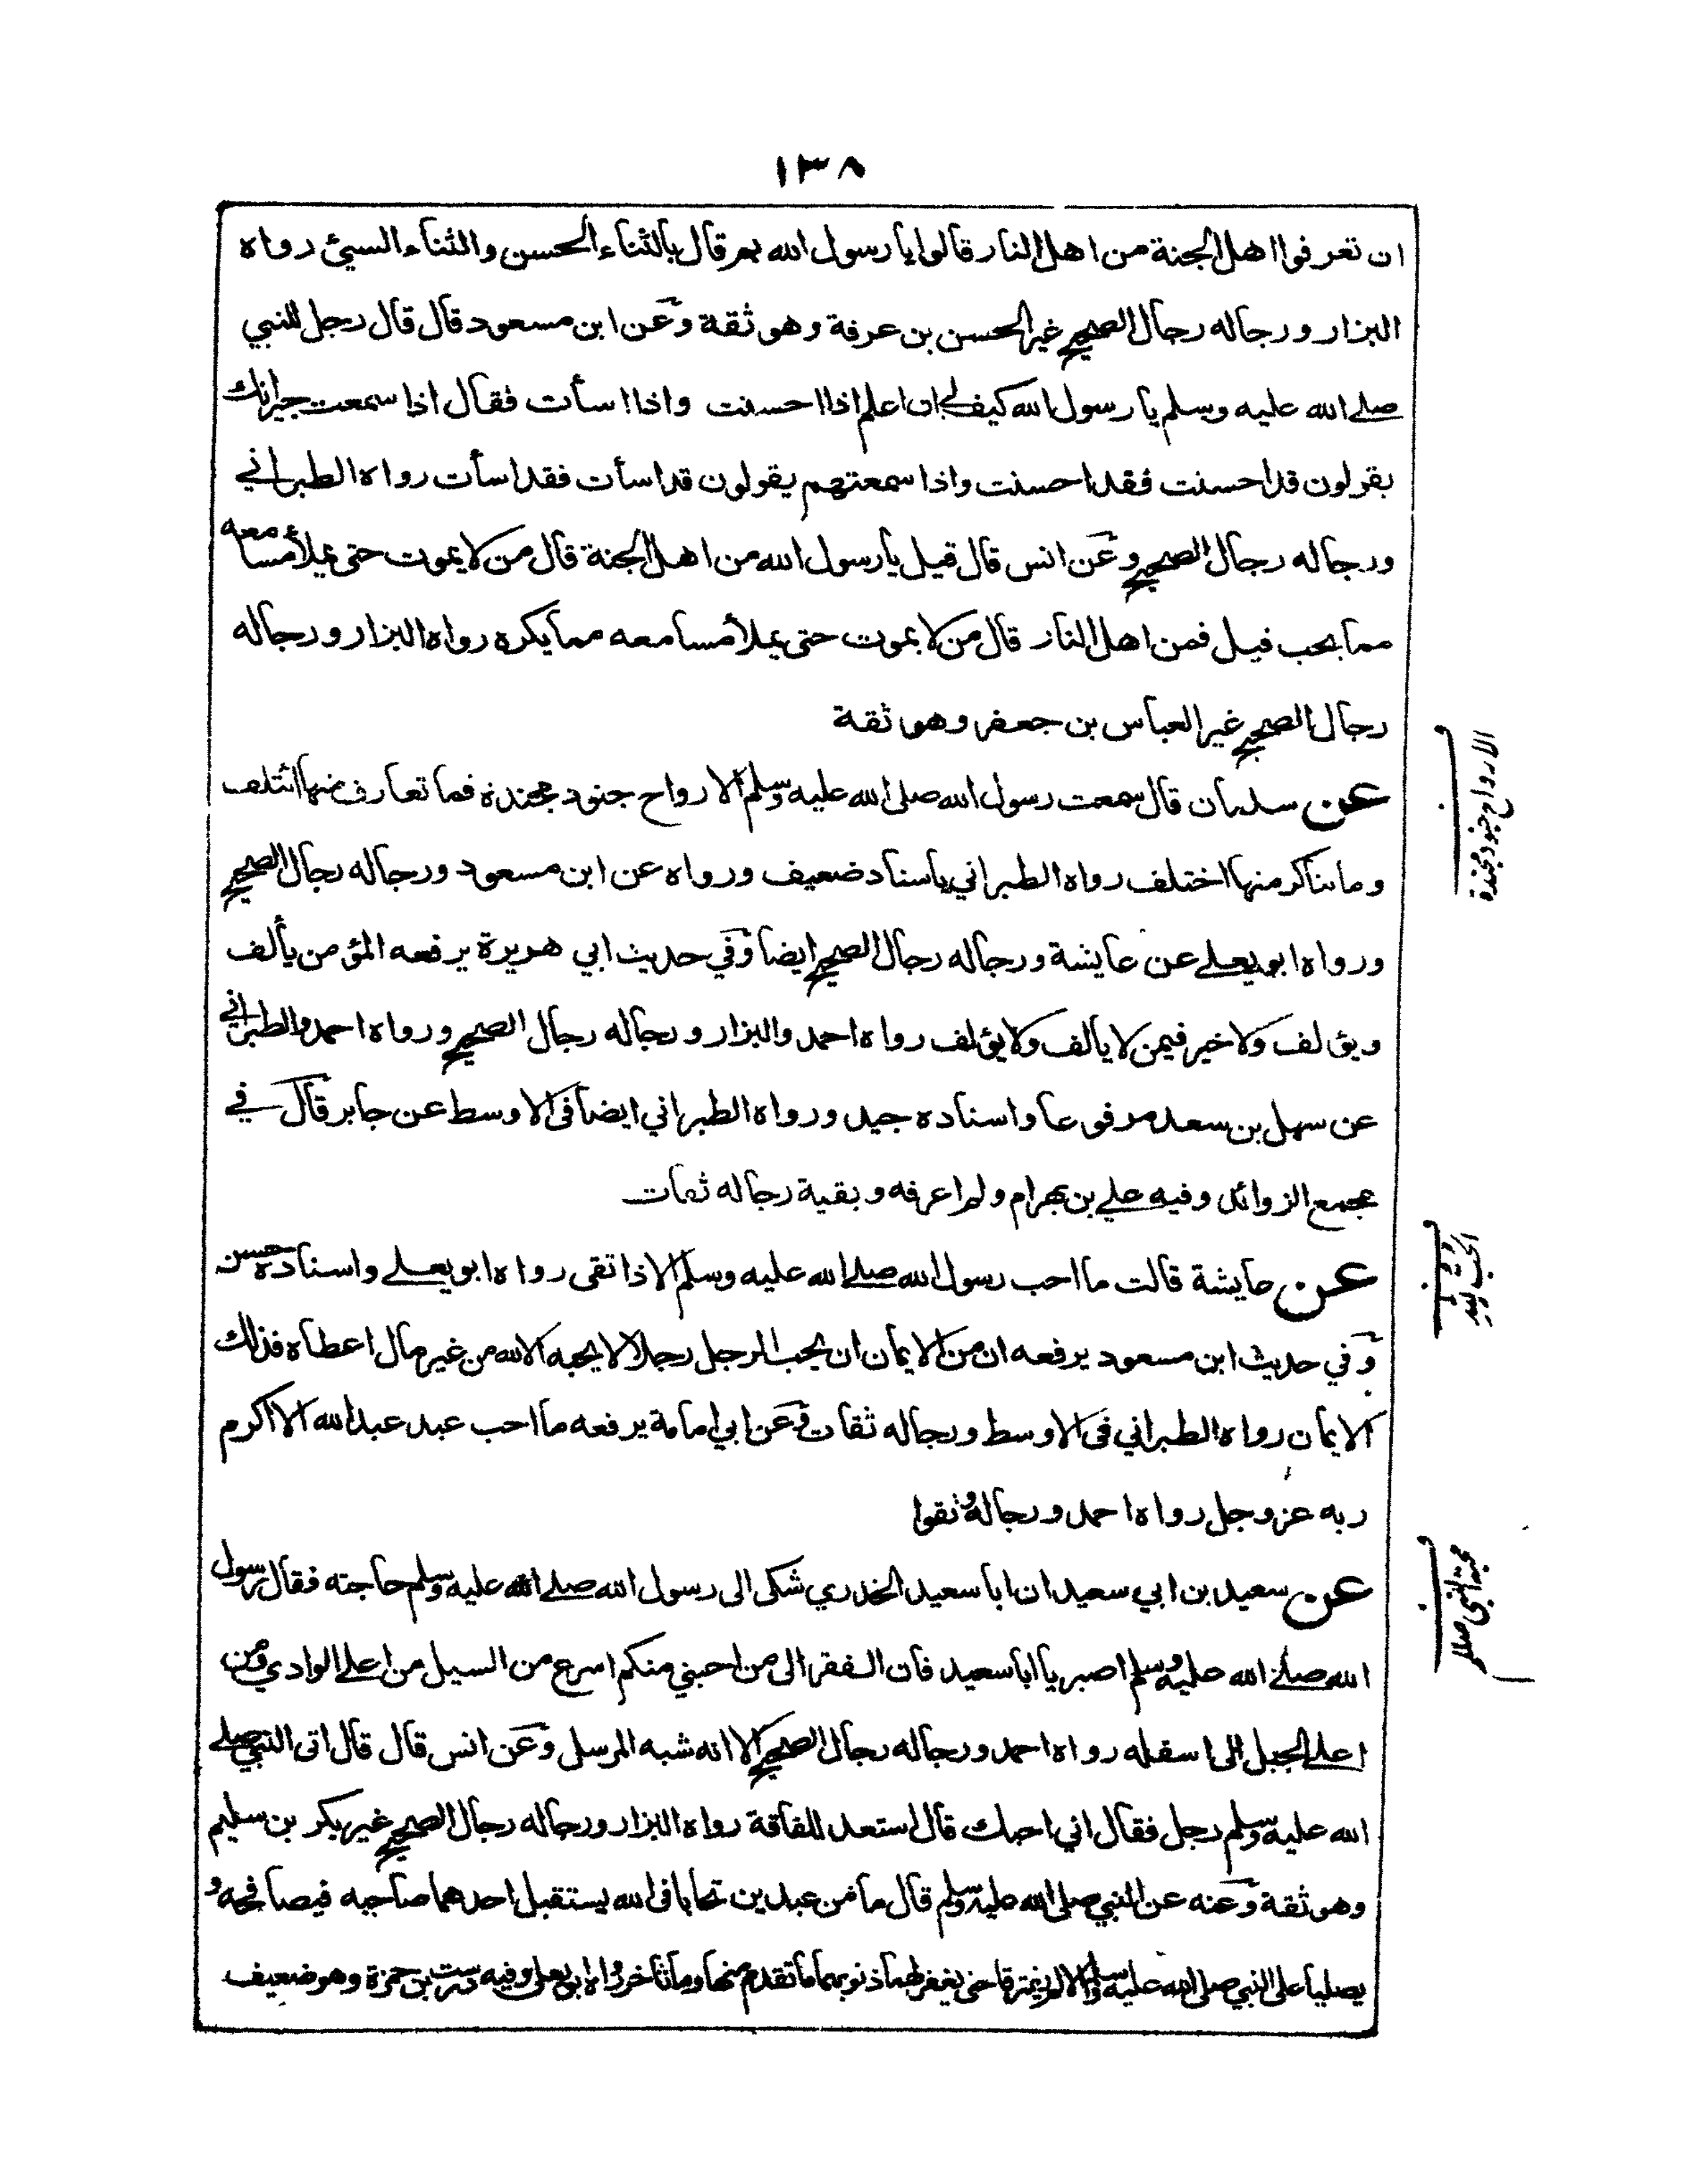 ١٣٨
ان تعرفوا اهل الجنة من اهل النار قالوا يا رسول الله بم قال بالثناء الحسن والثناء السيئ رواه
البزار ورجاله رجال الصحيح غير الحسن بن عرفة وهو ثقة وعن ابن مسعود قال قال رجل للنبي
صلى الله عليه وسلم يا رسول الله كيف لي ان اعلم اذا احسنت واذا اسأت فقال اذا سمعت جيرانك
يقولون قد احسنت فقد احسنت واذا سمعتهم يقولون قد اسأت فقد اسأت رواه الطبراني
ورجاله رجال الصحيح وعن انس قال قيل يا رسول الله من اهل الجنة قال من لا يموت حتى يملأ مسامعه
مما يحب قيل فمن اهل النار قال من لا يموت حتى يملأ مسامعه مما يكره رواه البزار ورجاله
رجال الصحيح غير العباس بن جعفر وهو ثقة
الارواح جنود مجندة
عن سلمان قال سمعت رسول الله صلى الله عليه وسلم الارواح جنود مجندة فما تعارف منها ائتلف
وما تناكر منها اختلف رواه الطبراني باسناد ضعيف ورواه عن ابن مسعود ورجاله رجال الصحيح
ورواه ابو يعلى عن عايشة ورجاله رجال الصحيح ايضا وفي حديث ابي هريرة يرفعه المؤمن يألف
ويؤلف ولا خير فيمن لا يألف ولا يؤلف رواه احمد والبزار ورجاله رجال الصحيح ورواه احمد والطبراني
عن سهل بن سعد مرفوعا واسناده جيد ورواه الطبراني ايضا فى الاوسط عن جابر قال في
مجمع الزوائد وفيه علي بن بهرام ولم اعرفه وبقية رجاله ثقات
الحب لله
عن عايشة قالت ما احب رسول الله صلى الله عليه وسلم الا ذا تقى رواه ابو يعلى واسناده حسن
وفي حديث ابن مسعود يرفعه ان من الايمان ان يحب الرجل رجلا لا يحبه الا لله من غير مال اعطاه فذلك
الايمان رواه الطبراني فى الاوسط ورجاله ثقات وعن ابي امامة يرفعه ما احب عبد عبدا لله الا اكرم
ربه عز وجل رواه احمد ورجاله وثقوا
محبة النبي صللم
عن سعيد بن ابي سعيد ان ابا سعيد الخدري شكى الى رسول الله صلى الله عليه وسلم حاجته فقال رسول
الله صلى الله عليه وسلم اصبر يا ابا سعيد فان الفقر الى من احبني منكم اسرع من السيل من اعلى الوادي ومن
اعلى الجبل الى اسفله رواه احمد ورجاله رجال الصحيح الا انه شبه المرسل وعن انس قال قال اتى النبي صلى
الله عليه وسلم رجل فقال اني احبك قال استعد للفاقة رواه البزار ورجاله رجال الصحيح غير بكر بن سليم
وهو ثقة وعنه عن النبي صلى الله عليه وسلم قال ما من عبدين تحابا فى الله يستقبل احدهما صاحبه فيصافحه و
يصليا على النبي صلى الله عليه وسلم الا لم يفترقا حتى يغفر لهما ذنوبهما ما تقدم منها وما تأخر رواه ابو يعلى وفيه درست بن حمزة وهو ضعيف